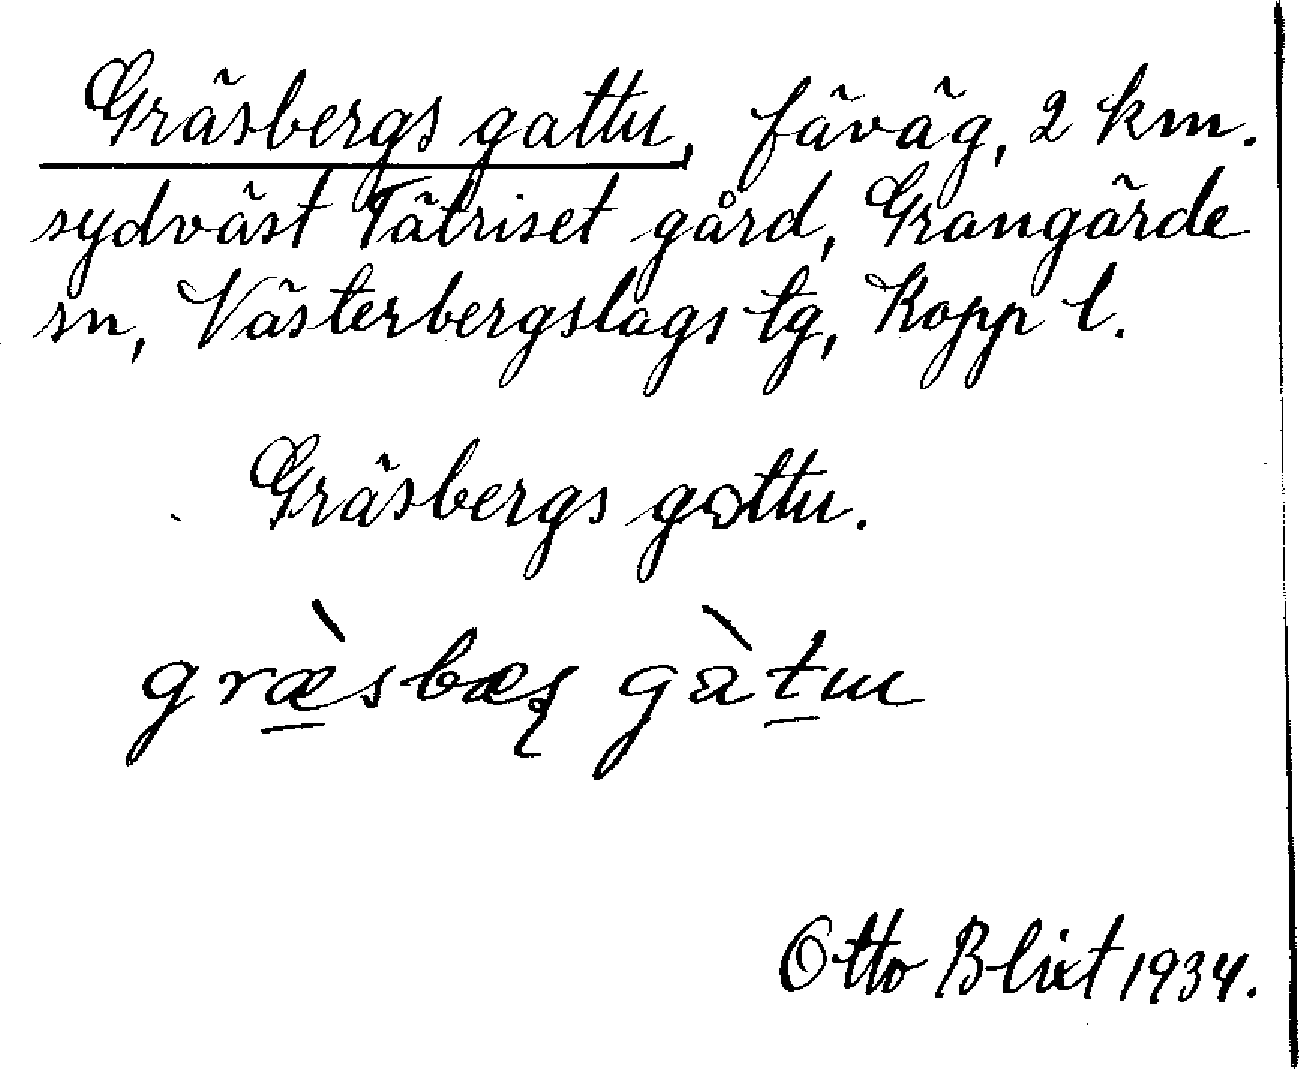 Gräsbergs gattu, fäväg, 2 km.
sydväst Tätriset gård, Grangärde
sn, Västerbergslags tg, Kopp l.
Gräsbergs gattu.
græ̀sbæʂ gàtu
Otto Blixt 1934.